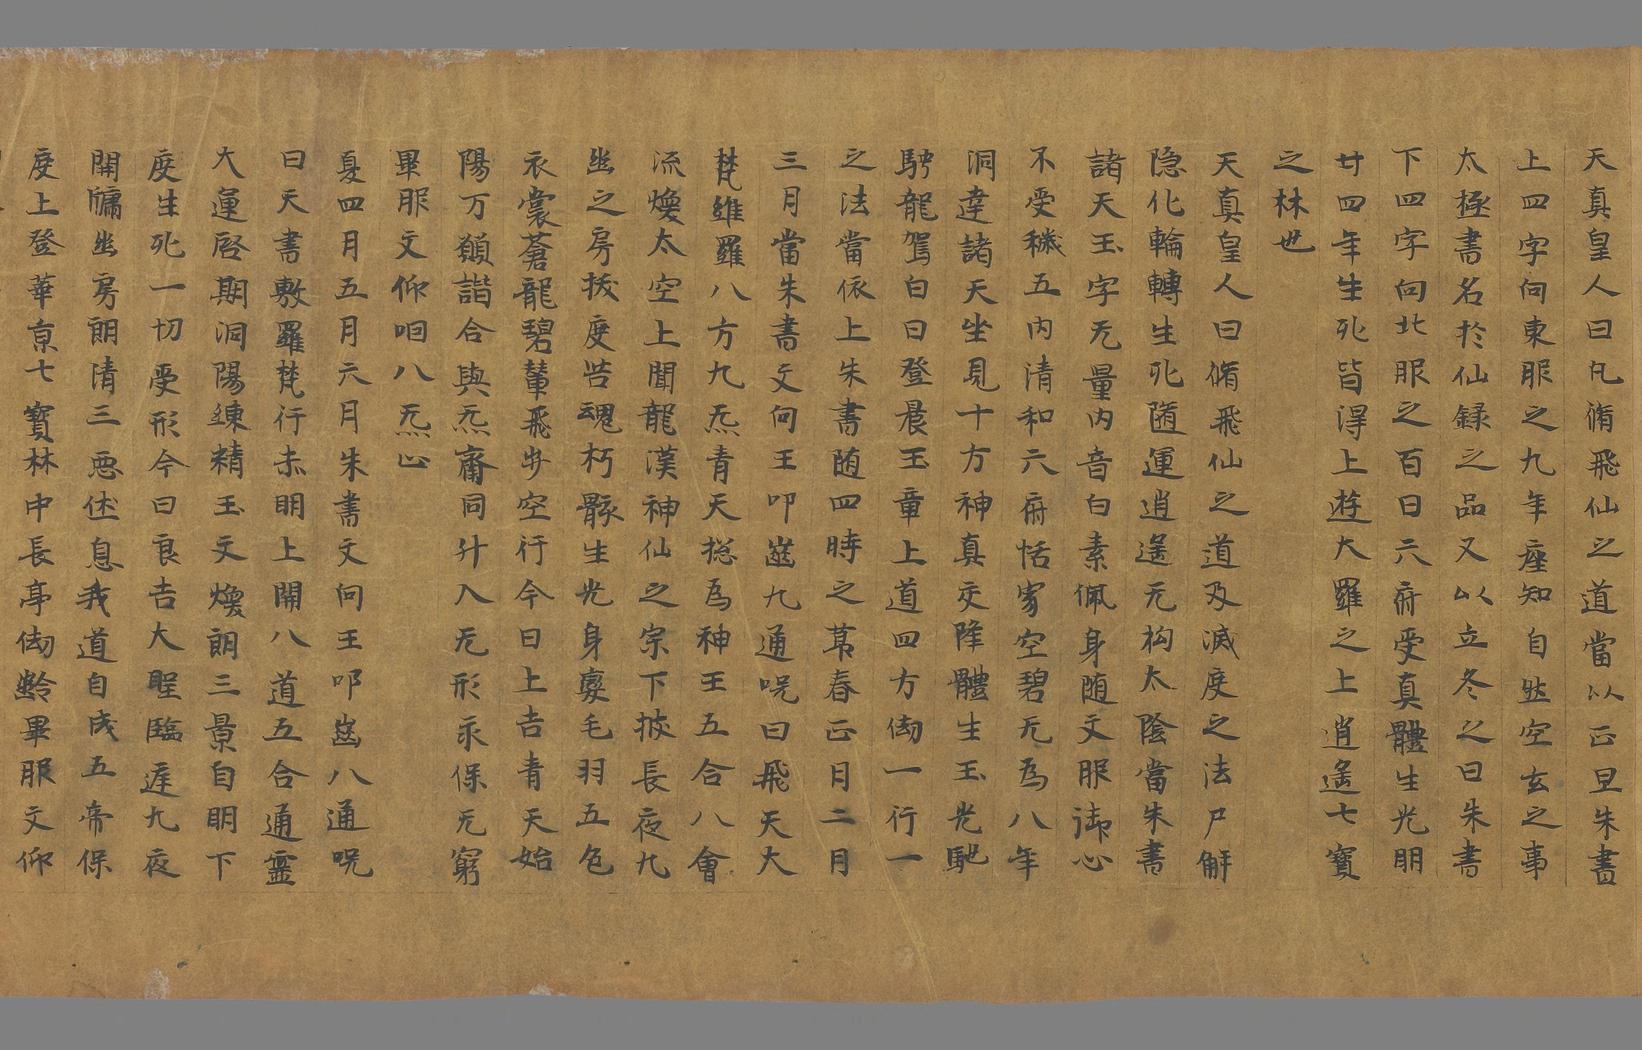 天真皇人曰凡脩飛仙之道當以正旦朱書
上四字向東服之九年座知自然空玄之事
太極書名於仙録之品又以立冬之日朱書
下四字向北服之百日六府受真體生光明
廿四年生死皆得上遊大羅之上逍遙七寶
之林也
天真皇人曰脩飛仙之道及滅度之法尸解
隱化輪轉生死隨運逍遙无拘太陰當朱書
諸天玉字无量内音白素佩身随文服御心
不受穢五内清和六府恬寥空碧无為八年
洞達諸天坐見十方神真交降體生玉光馳
駛龍駕白日登晨玉童上道四方仙一行一
之法當依上朱書随四時之葛春正月二月
三月當朱書文向王叩齒九通呪曰飛天大
梵維羅八方九炁青天揔為神王五合八會
流煥太空上聞龍漢神仙之宗下披長夜九
幽之房拔度苦魂朽骸生光身變毛羽五色
衣裳蒼龍碧輦飛步空行今日上吉青天始
陽万願諧合與炁齋同升入无形永保无窮
畢服文仰咽八炁止
夏四月五月六月朱書文向王叩齒八通呪
曰天書敷羅梵行赤明上開八道五合通靈
大運啓期洞陽練精玉文煥朗三景自明下
度生死一切受形今日良吉大聖臨遅九夜
開牗幽房朗清三惡休息我道自成五帝保
度上登華京七寶林中長享仙齡畢服文仰